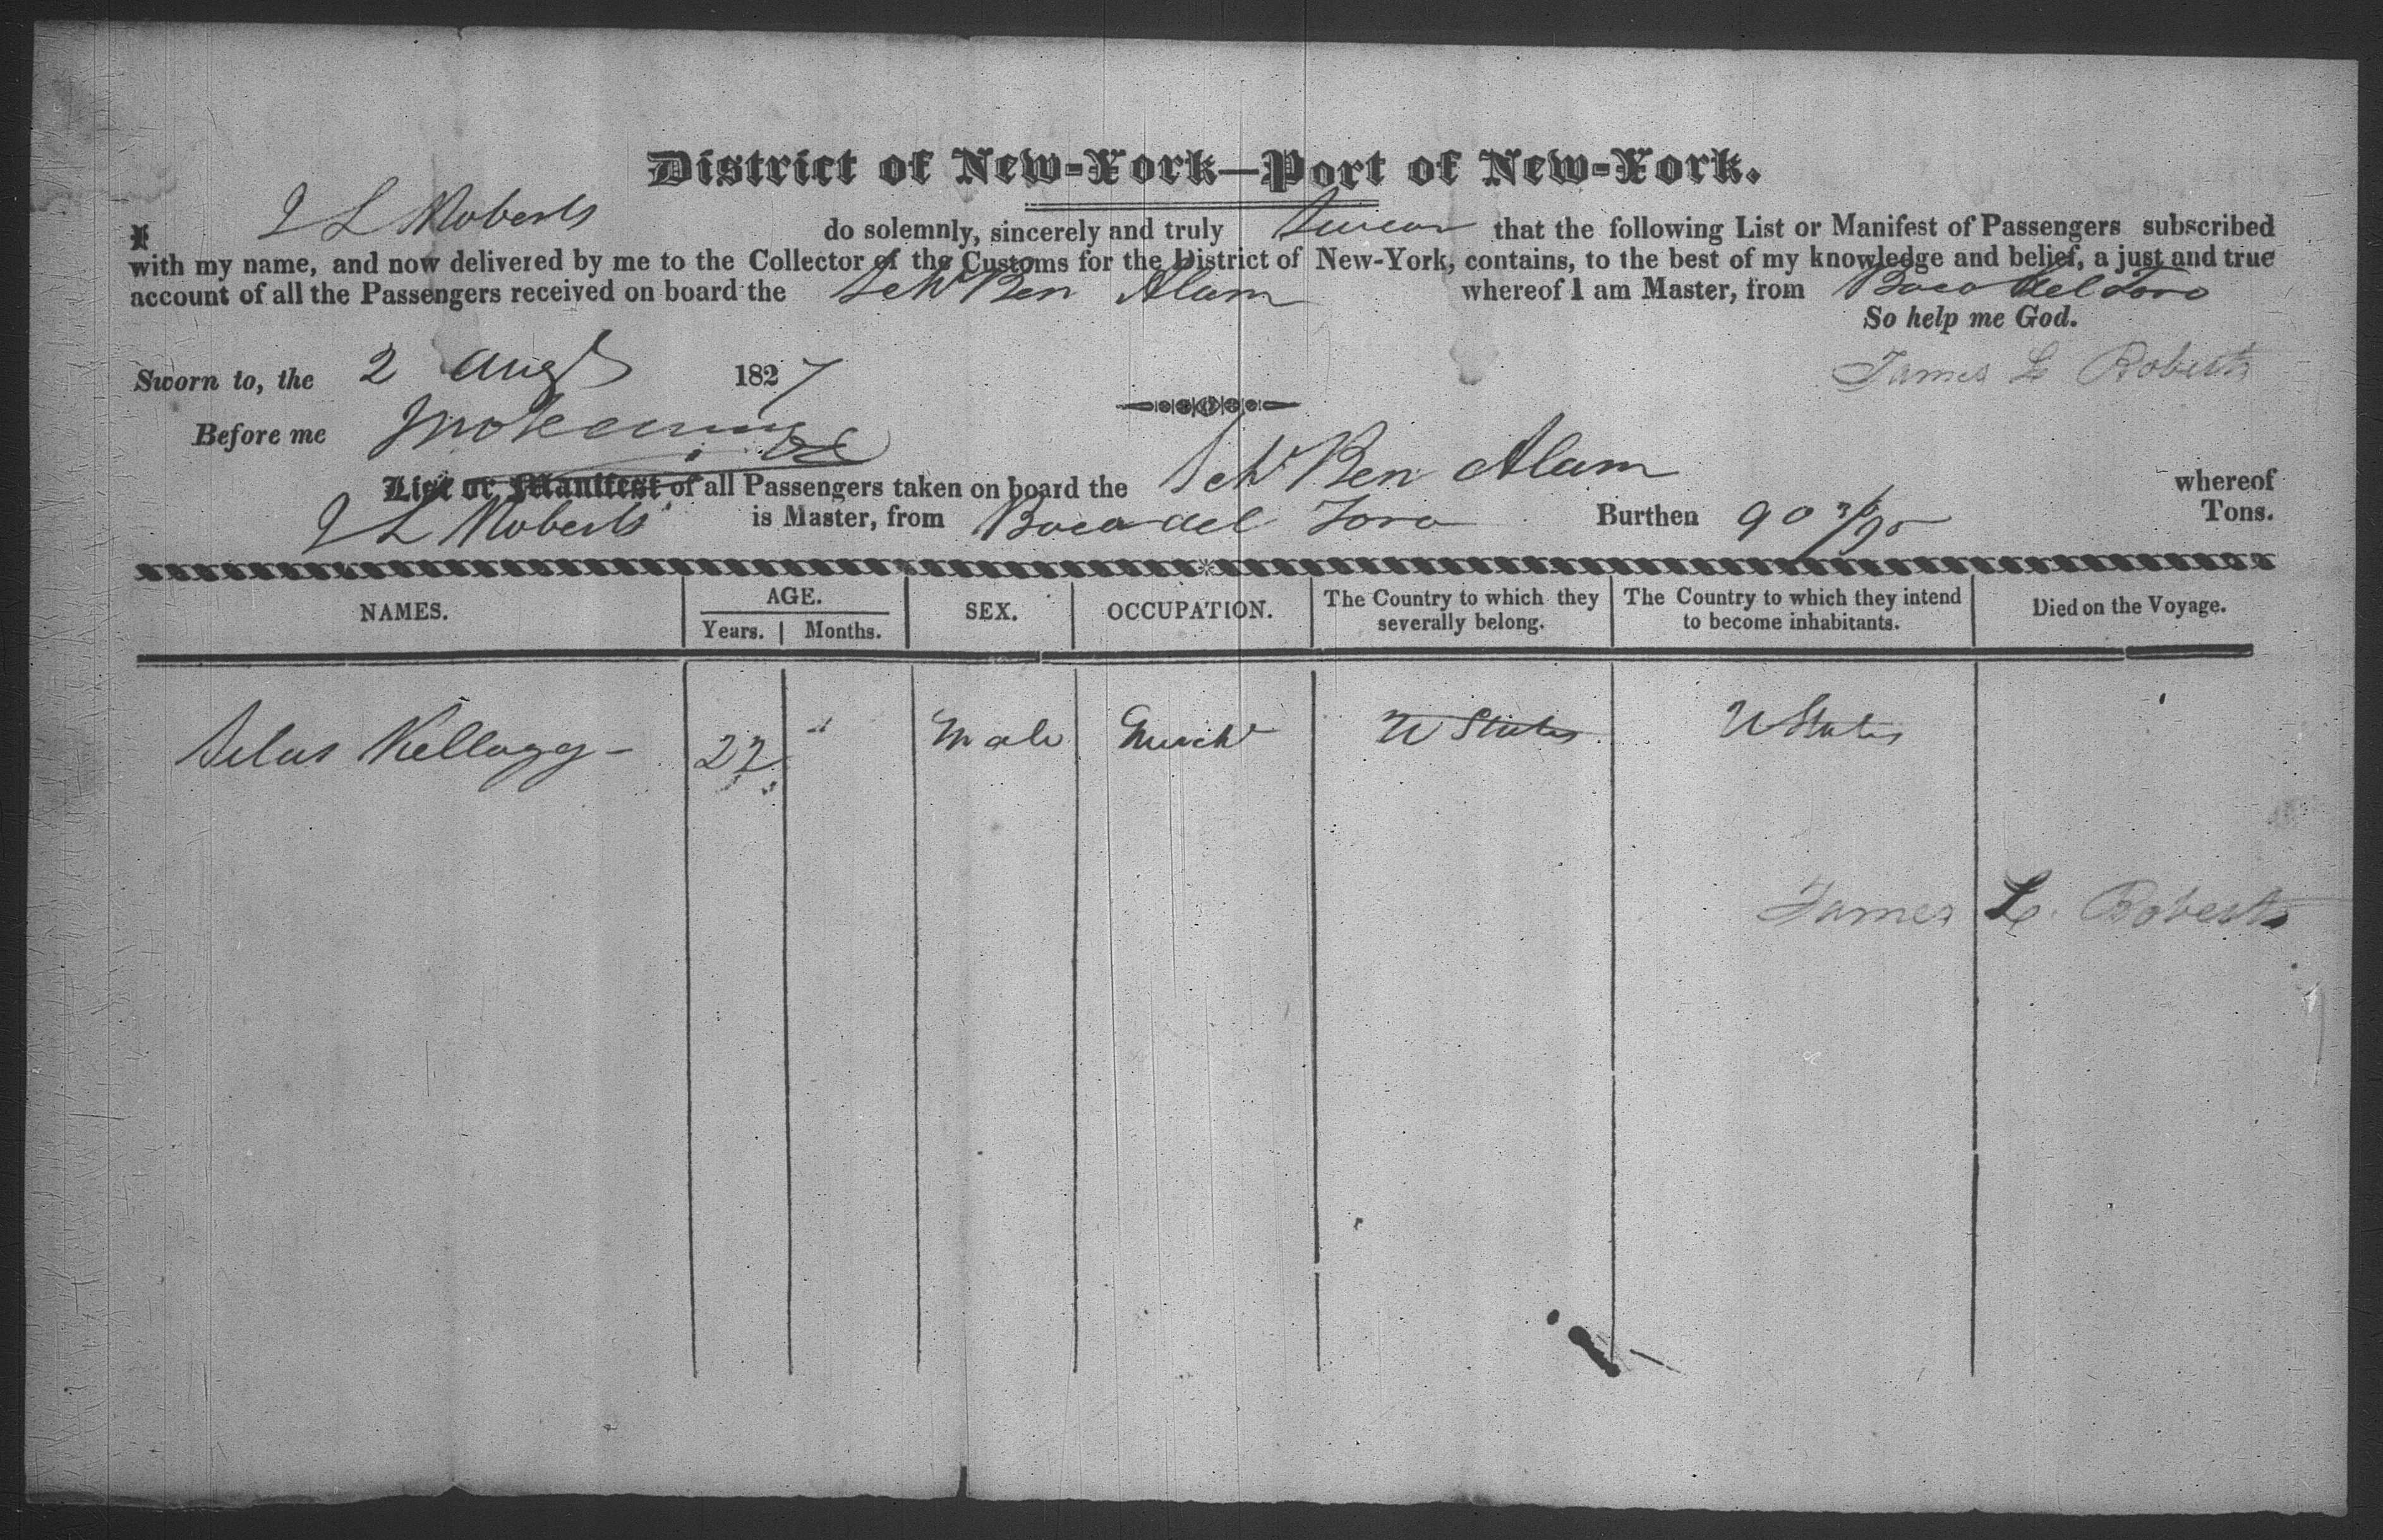 District of New-York—Port of New-York.
I J L Roberts do solemnly, sincerely and truly Swear that the following List or Manifest of Passengers subscribed
with my name, and now delivered by me to the Collector of the Customs for the District of New-York, contains, to the best of my knowledge and belief, a just and true
account of all the Passengers received on board the Schr Ben Alam whereof I am Master, from Boca del Toro
So help me God.
Sworn to, the 2 Augt 1827
James L Roberts
Before me
List or Manifest of all Passengers taken on board the Schr Ben Alam whereof
J L Roberts is Master, from Boca del Toro Burthen 90 Tons.
NAMES. AGE. SEX. OCCUPATION. The Country to which they severally belong. The Country to which they intend to become inhabitants. Died on the Voyage.
Years. Months.
Silas Kellogg 27 " Male Mercht U States U States
James L. Roberts